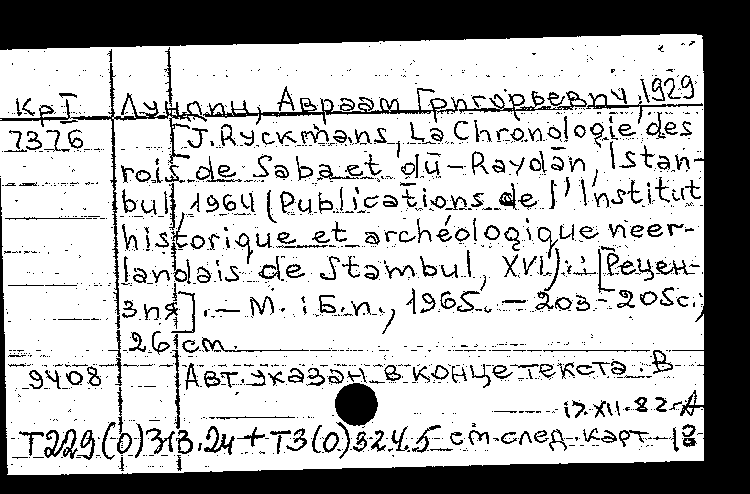 КрI Лундин, Авраам Григорьевич, 1929
7376 [J. Ryckmans, La Chronologie des
rois de Saba et dū-Raydān, Istan-
bul, 1964 (Publications de l'Institut
historique et archéologique neer-
landais de Stambul, XVI).: [Рецен-
зия]. — М.: Б.п., 1965. — 203-205с.;
26 cm.
9408 Авт. указан в конце текста. В
17.XII.82
Т229(0)313.24 + Т3(0)324.5 см. след. карт.